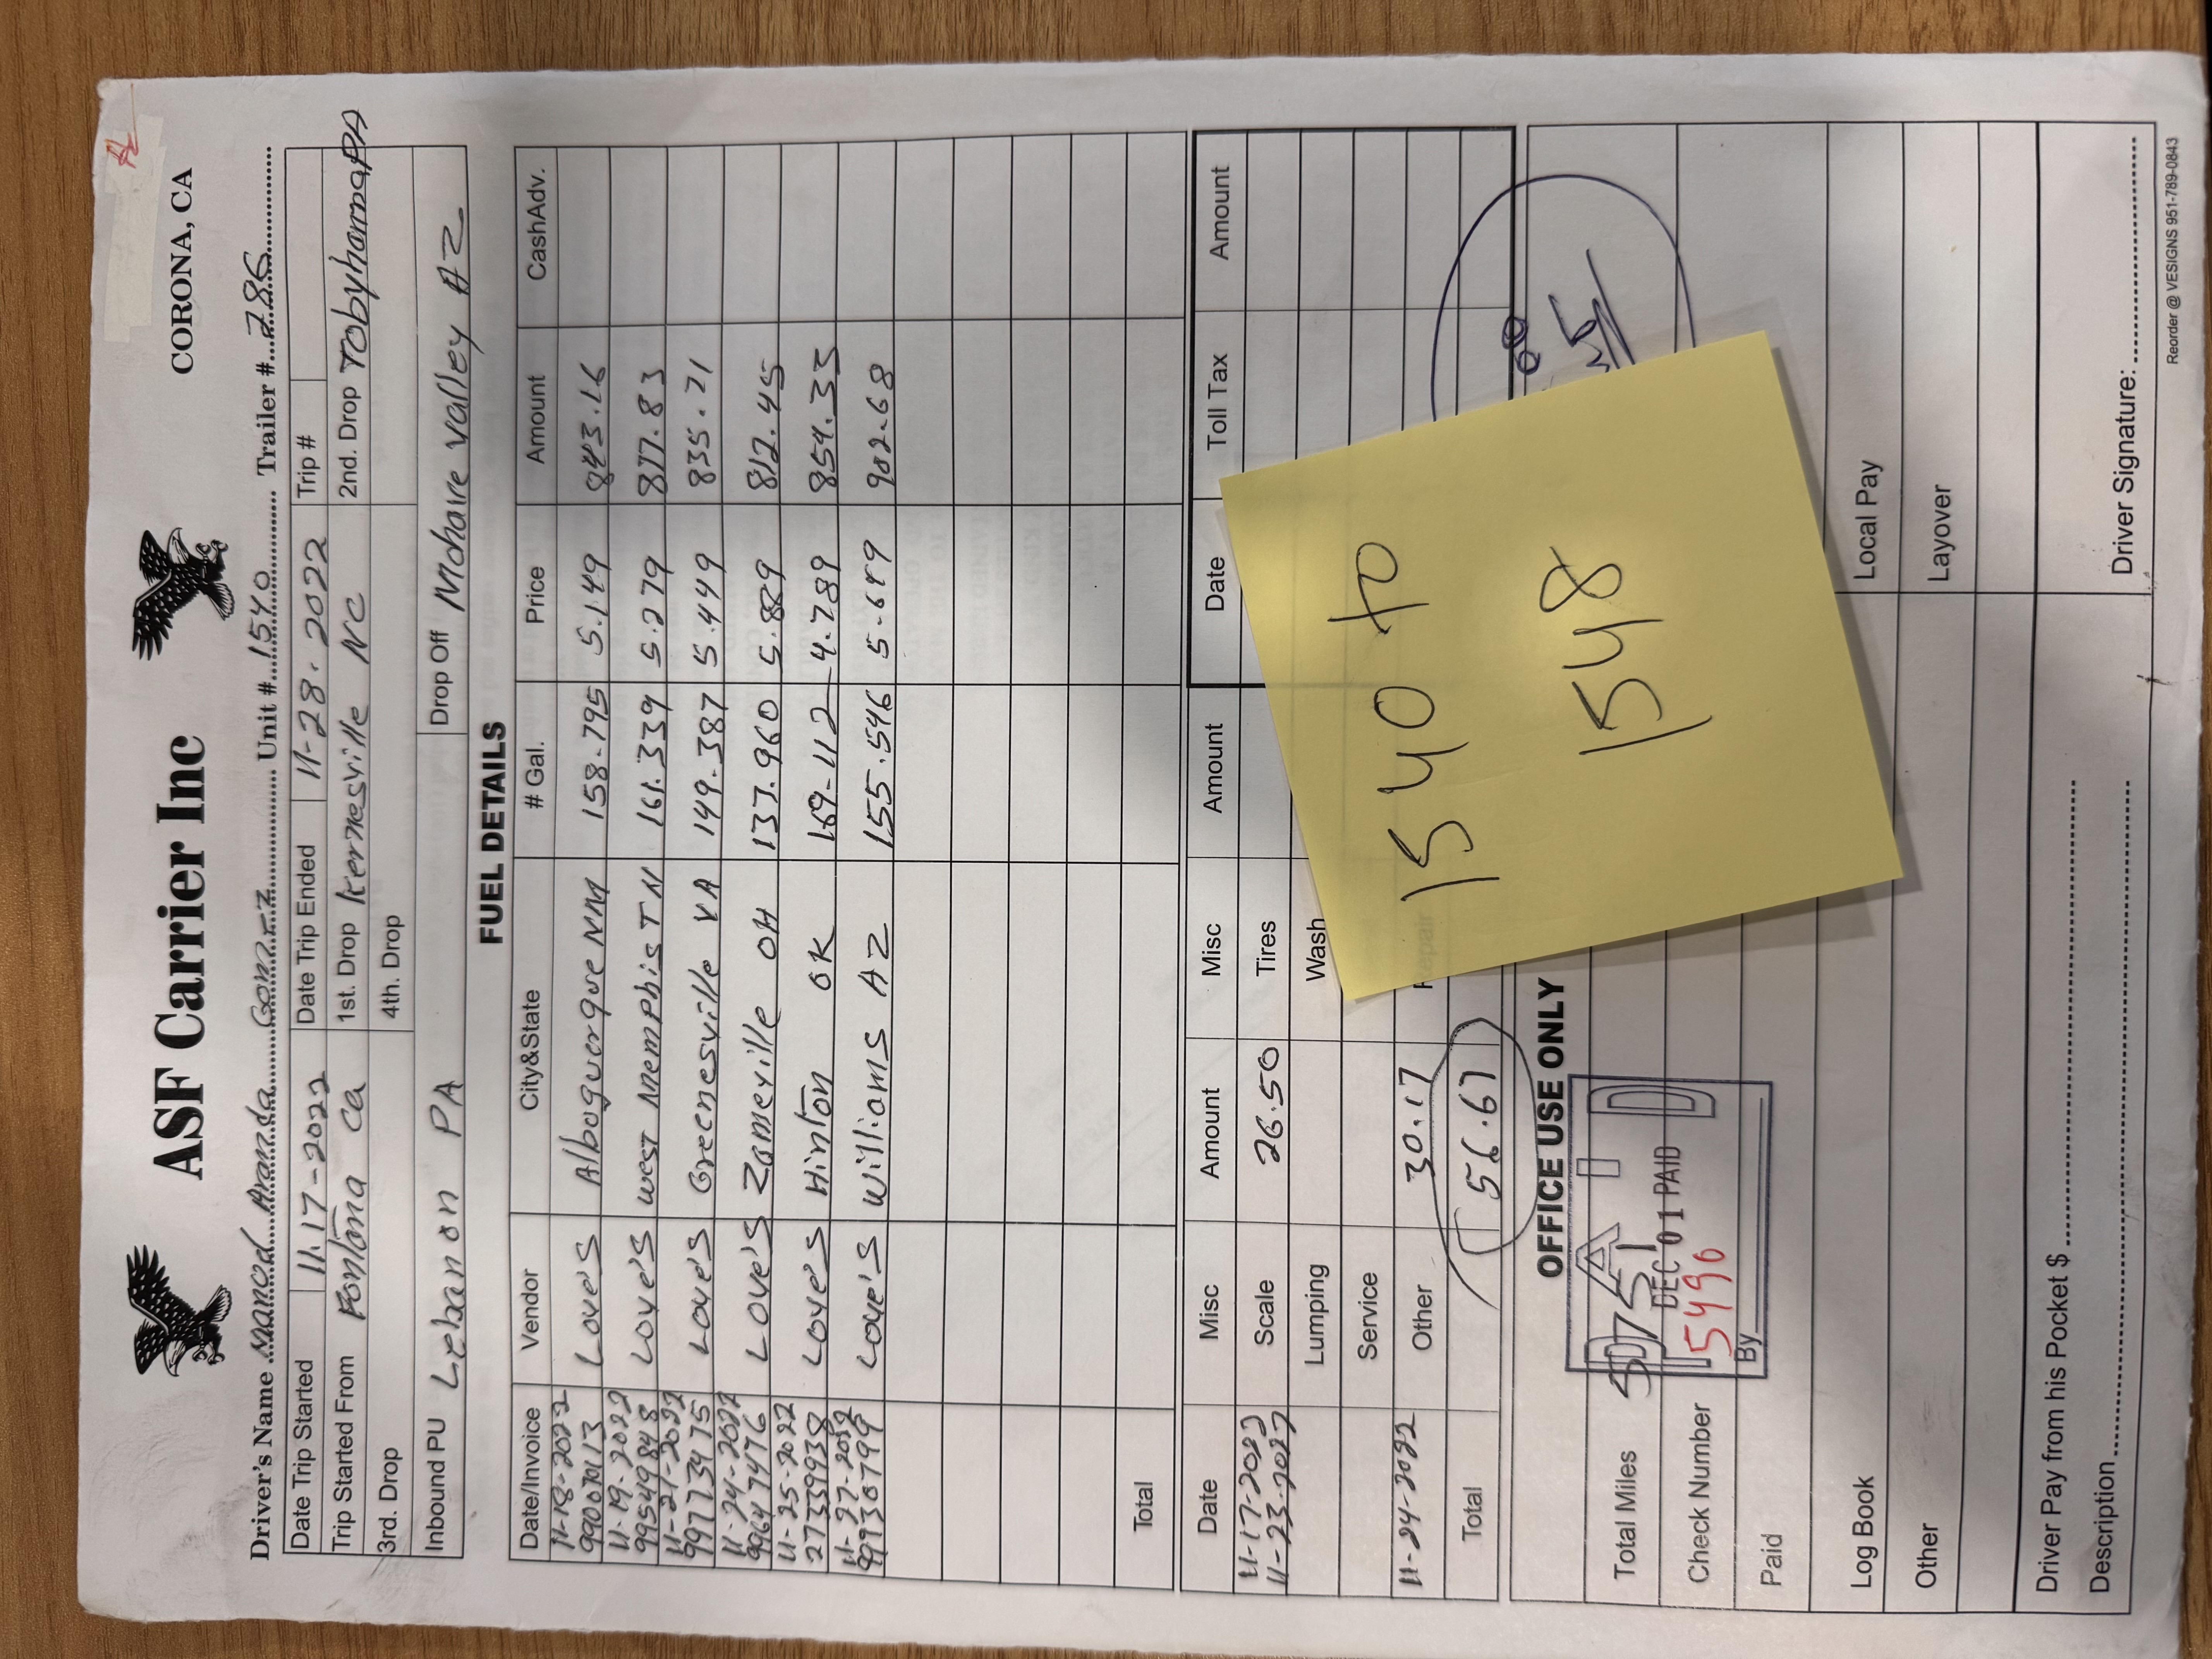 ASF Carrier Inc
CORONA, CA
Driver's Name Manod Aranda Gomez Unit # 1540 Trailer # 286
Date Trip Started 11.17-2022 Date Trip Ended 11-28.2022 Trip #
Trip Started From Fontana Ca 1st. Drop Kernesville NC 2nd. Drop Tobyhanna PA
3rd. Drop 4th. Drop
Inbound PU Lebanon PA Drop Off Mohave valley AZ
FUEL DETAILS
Date/Invoice Vendor City&State # Gal. Price Amount CashAdv.
11-18-2022
990070113 Love's Albuquerque NM 158.795 5.149 843.16
11-19-2022
99549848 Love's West Memphis TN 161.339 5.279 877.83
11-21-2022
99773475 Love's Greenesville VA 149.387 5.449 835.21
11-24-2022
99647476 Love's Zameville OH 137.960 5.889 812.45
11-25-2022
27339938 Love's Hinton OK 169-112 4.789 854.33
11-27-2022
99730799 Love's Williams AZ 155.546 5.649 902.68
Total
Date Misc Amount Misc Amount Date Toll Tax Amount
11-17-2022
11-23-2022 Scale 26.50 Tires
Lumping Wash
Service
11-24-2022 Other 30.17 Repair
Total 56.67
1540 to
1548
00
OFFICE USE ONLY
PAID
Total Miles 5751
DEC 01 PAID
Check Number 5490
By
Paid
Log Book Local Pay
Other Layover
Driver Pay from his Pocket $
Description
Driver Signature:
Reorder @ VESIGNS 951-789-0843